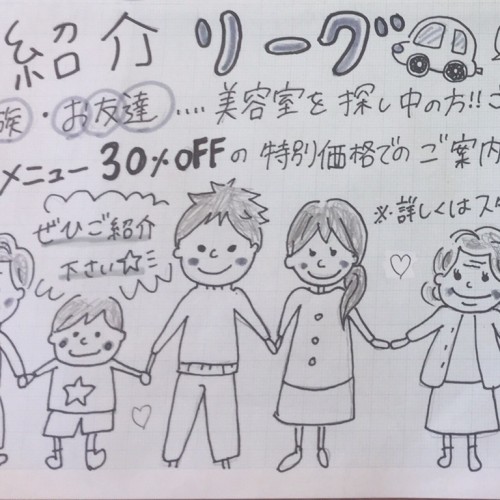 紹介リーグ
族・お友達....美容室を探し中の方!!
メニュー30%OFFの特別価格でのご案内
ぜひご紹介
下さい☆
※詳しくはスタ